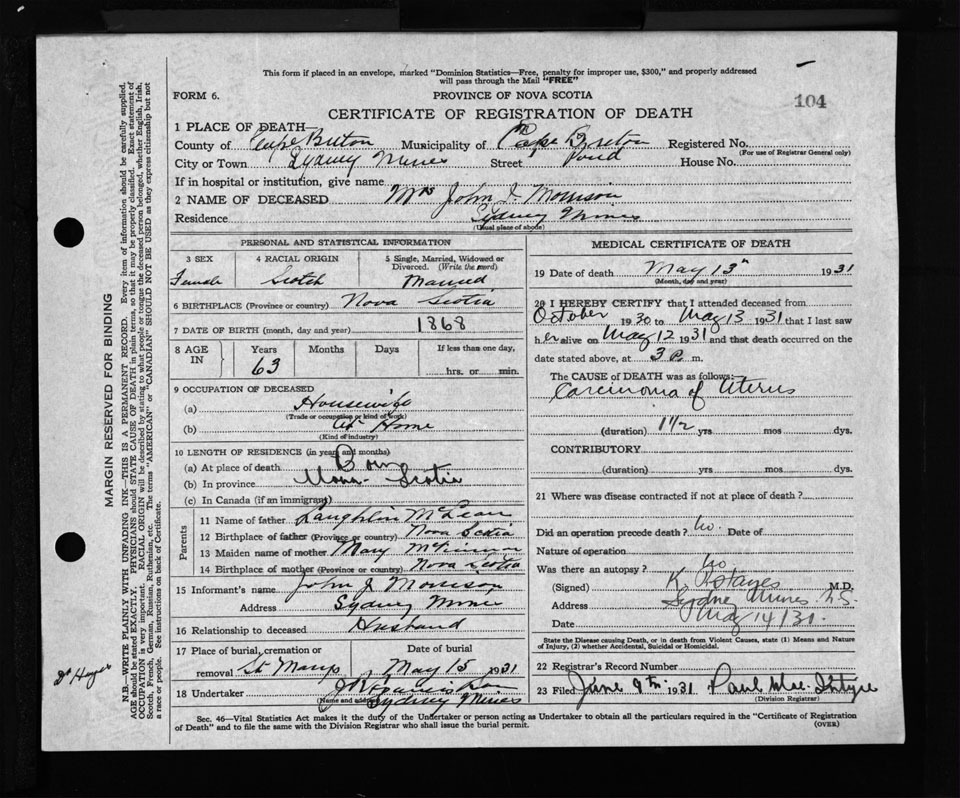 This form if placed in an envelope, marked "Dominion Statistics—Free, penalty for improper use, $300," and properly addressed
will pass through the Mail "FREE"
FORM 6.
PROVINCE OF NOVA SCOTIA
104
CERTIFICATE OF REGISTRATION OF DEATH
1 PLACE OF DEATH—
County of Cape Breton Municipality of Cape Breton Registered No.
(For use of Registrar General only)
City or Town Sydney Mines Street Pond House No.
If in hospital or institution, give name
2 NAME OF DECEASED Mrs John J. Morrison
Residence Sydney Mines
(Usual place of abode)
PERSONAL AND STATISTICAL INFORMATION
3 SEX 4 RACIAL ORIGIN 5 Single, Married, Widowed or Divorced. (Write the word)
Female Scotch Married
6 BIRTHPLACE (Province or country) Nova Scotia
7 DATE OF BIRTH (month, day and year) 1868
8 AGE IN Years Months Days If less than one day,
63 hrs. or min.
9 OCCUPATION OF DECEASED
(a) Housewife
(Trade or occupation or kind of work)
(b) At Home
(Kind of industry)
10 LENGTH OF RESIDENCE (in years and months)
(a) At place of death Born
(b) In province Nova Scotia
(c) In Canada (if an immigrant)
Parents
11 Name of father Laughlin McLean
12 Birthplace of father (Province or country) Nova Scotia
13 Maiden name of mother Mary McKinnon
14 Birthplace of mother (Province or country) Nova Scotia
15 Informant's name John J Morrison
Address Sydney Mines
16 Relationship to deceased Husband
17 Place of burial, cremation or removal St Marys Date of burial May 15 1931
18 Undertaker
(Name and address) Sydney Mines
MEDICAL CERTIFICATE OF DEATH
19 Date of death May 13th 1931
(Month, day and year)
20 I HEREBY CERTIFY that I attended deceased from
October 1930 to May 13 1931 that I last saw
her alive on May 12 1931 and that death occurred on the
date stated above, at 3 P. m.
The CAUSE of DEATH was as follows:
Carcinoma of Uterus
(duration) 1 1/2 yrs mos dys.
CONTRIBUTORY
(duration) yrs. mos. dys.
21 Where was disease contracted if not at place of death?
Did an operation precede death? no. Date of
Nature of operation
Was there an autopsy? no
(Signed) M.D.
Address Sydney Mines N.S.
Date May 14/31.
State the Disease causing Death, or in death from Violent Causes, state (1) Means and Nature
of Injury, (2) whether Accidental, Suicidal or Homicidal.
22 Registrar's Record Number
23 Filed June 9th 1931 Paul Mac Intyre
(Division Registrar)
Sec. 46—Vital Statistics Act makes it the duty of the Undertaker or person acting as Undertaker to obtain all the particulars required in the "Certificate of Registration
of Death" and to file the same with the Division Registrar who shall issue the burial permit.
(OVER)
MARGIN RESERVED FOR BINDING
N.B.—WRITE PLAINLY WITH UNFADING INK—THIS IS A PERMANENT RECORD. Every item of information should be carefully supplied.
AGE should be stated EXACTLY. PHYSICIANS should STATE CAUSE OF DEATH in plain terms, so that it may be properly classified. Exact statement of
OCCUPATION is very important. RACIAL ORIGIN will be described by stating to what people or tongue the deceased person belonged, whether English, Irish,
Scotch, French, German, Russian, Ruthenian, etc. The terms "AMERICAN" or "CANADIAN" SHOULD NOT BE USED as they express citizenship but not
a race or people. See instructions on back of Certificate.